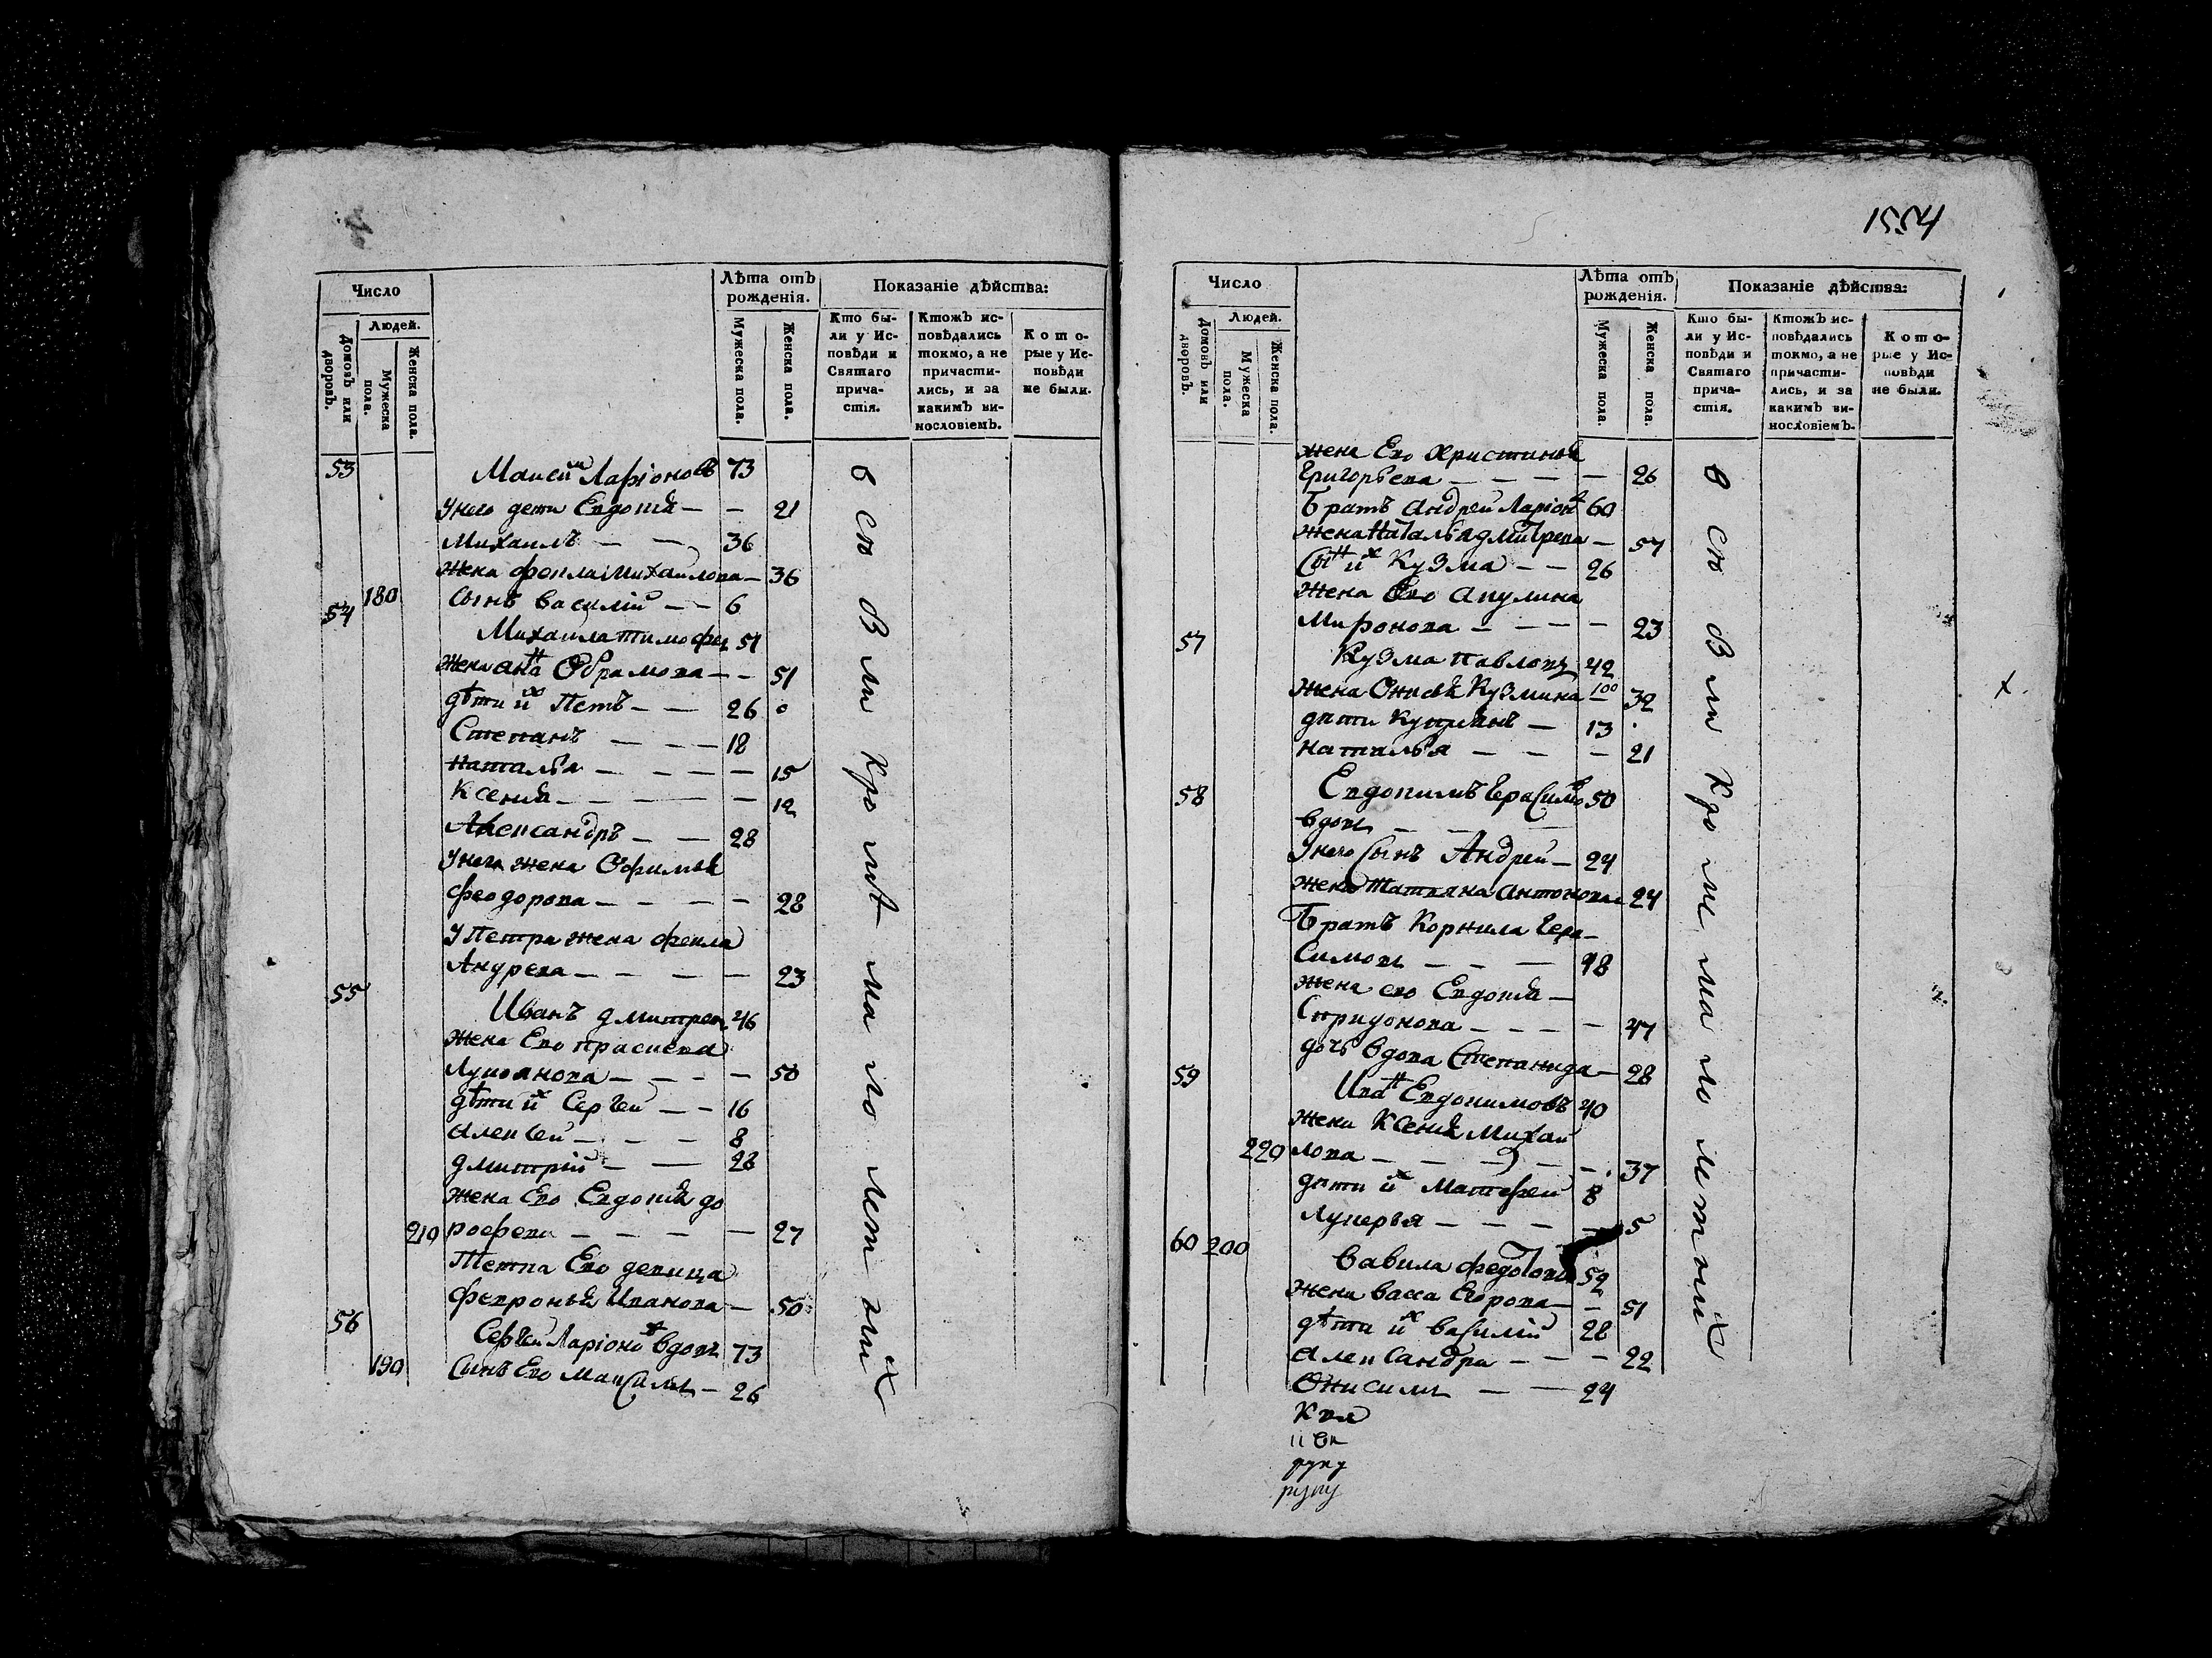 Число
Людей.
Домовъ или дворовъ.
Мужеска пола.
Женска пола.
Лѣта отъ рожденія.
Мужеска пола.
Женска пола.
Показаніе дѣйства:
Кто бы-
ли у Ис-
повѣди и
Святаго
прича-
стія.
Ктожъ ис-
повѣдались
токмо, а не
причасти-
лись, и за
какимъ ви-
нословіемъ.
Кото-
рые у Ис-
повѣди
не были.
53 Ларіоновъ 73
У него дети Евдотья — — 21
Михаилъ — — 36
жена Фекла Михаилова — 36
180 Сынъ Василій — — 6
54 Михаила Тимофеи 51
Жена Анна Обрамова — — 51
дѣти их Петъ — — 26
Степанъ — — — 18
Наталья — — — — 15
Ксенья — — — — 12
Александръ — — 28
У него жена Офимья
Феодорова — — — — 28
У Петра жена Фекла
Андрева — — — — 23
55 Иванъ Дмитрев 46
Жена Ево Прасковья
Лукоянова — — — — 50
дѣти их Сергеи — — 16
Алексеи — — — 8
Дмитрій — — 28
жена Ево Евдотья До
210 рофева — — — — 27
Тетка Ево девица
Февронья Иванова — 50
56 Сергеи Ларіоно вдовъ 73
190 Сынъ Ево Максимъ — 26
В сю В ли Кро мѣ ма ло лет ных
1554
Число
Людей.
Домовъ или дворовъ.
Мужеска пола.
Женска пола.
Лѣта отъ рожденія.
Мужеска пола.
Женска пола.
Показаніе дѣйства:
Кто бы-
ли у Ис-
повѣди и
Святаго
прича-
стія.
Ктожъ ис-
повѣдались
токмо, а не
причасти-
лись, и за
какимъ ви-
нословіемъ.
Кото-
рые у Ис-
повѣди
не были.
жена Ево Христинья
Григорьева — — — — 26
Братъ Андреи Ларіон 60
жена Наталья Дмитрева — 57
Сын их Кузма — — 26
жена Ево Акулина
Миронова — — — — 23
57 Кузма Павловъ 42
жена Онисья Кузмина — 32
дети — 13
Наталья — — — 21
58 Евдокимъ Герасимо 50
вдовъ — — —
У него Сынъ Андреи — 24
жена Татьяна Антонова 24
Братъ Корнила Гера-
симовъ — — — 48
жена ево Евдотья —
Спридонова — — — — 47
дочь вдова Степанида — 28
59 Иван Евдокимовъ 40
жена Ксенья Михаи
220 лова — — — — 37
дети их Матфеи 8
Лукерья — — — — 5
60 200 Вавила Федотовъ 52
жена Васса Егорова — — 51
дѣти их Василій 28
Александра — — — 22
Онисимъ — — 24
В сю В ли Кро ме ма ло летных